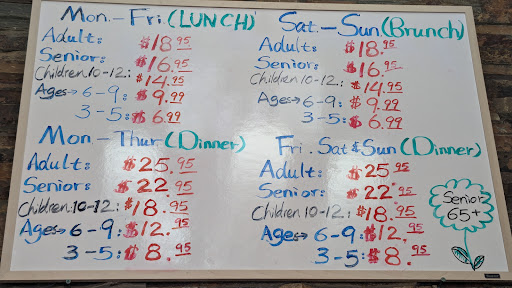 Mon.-Fri.(LUNCH)
Adult: $18.95
Senior: $16.95
Children 10-12: $14.95
Ages→ 6-9: $9.99
3-5: $6.99
Sat.-Sun.(Brunch)
Adult: $18.95
Senior: $16.95
Children 10-12: $14.95
Ages→ 6-9: $9.99
3-5: $6.99
Mon-Thur.(Dinner)
Adult: $25.95
Senior: $22.95
Children:10-12: $18.95
Ages→ 6-9: $12.95
3-5: $8.95
Fri.Sat & Sun(Dinner)
Adult: $25.95
Senior: $22.95
Children 10-12: $18.95
Ages→ 6-9: $12.95
3-5: $8.95
Senior
65+